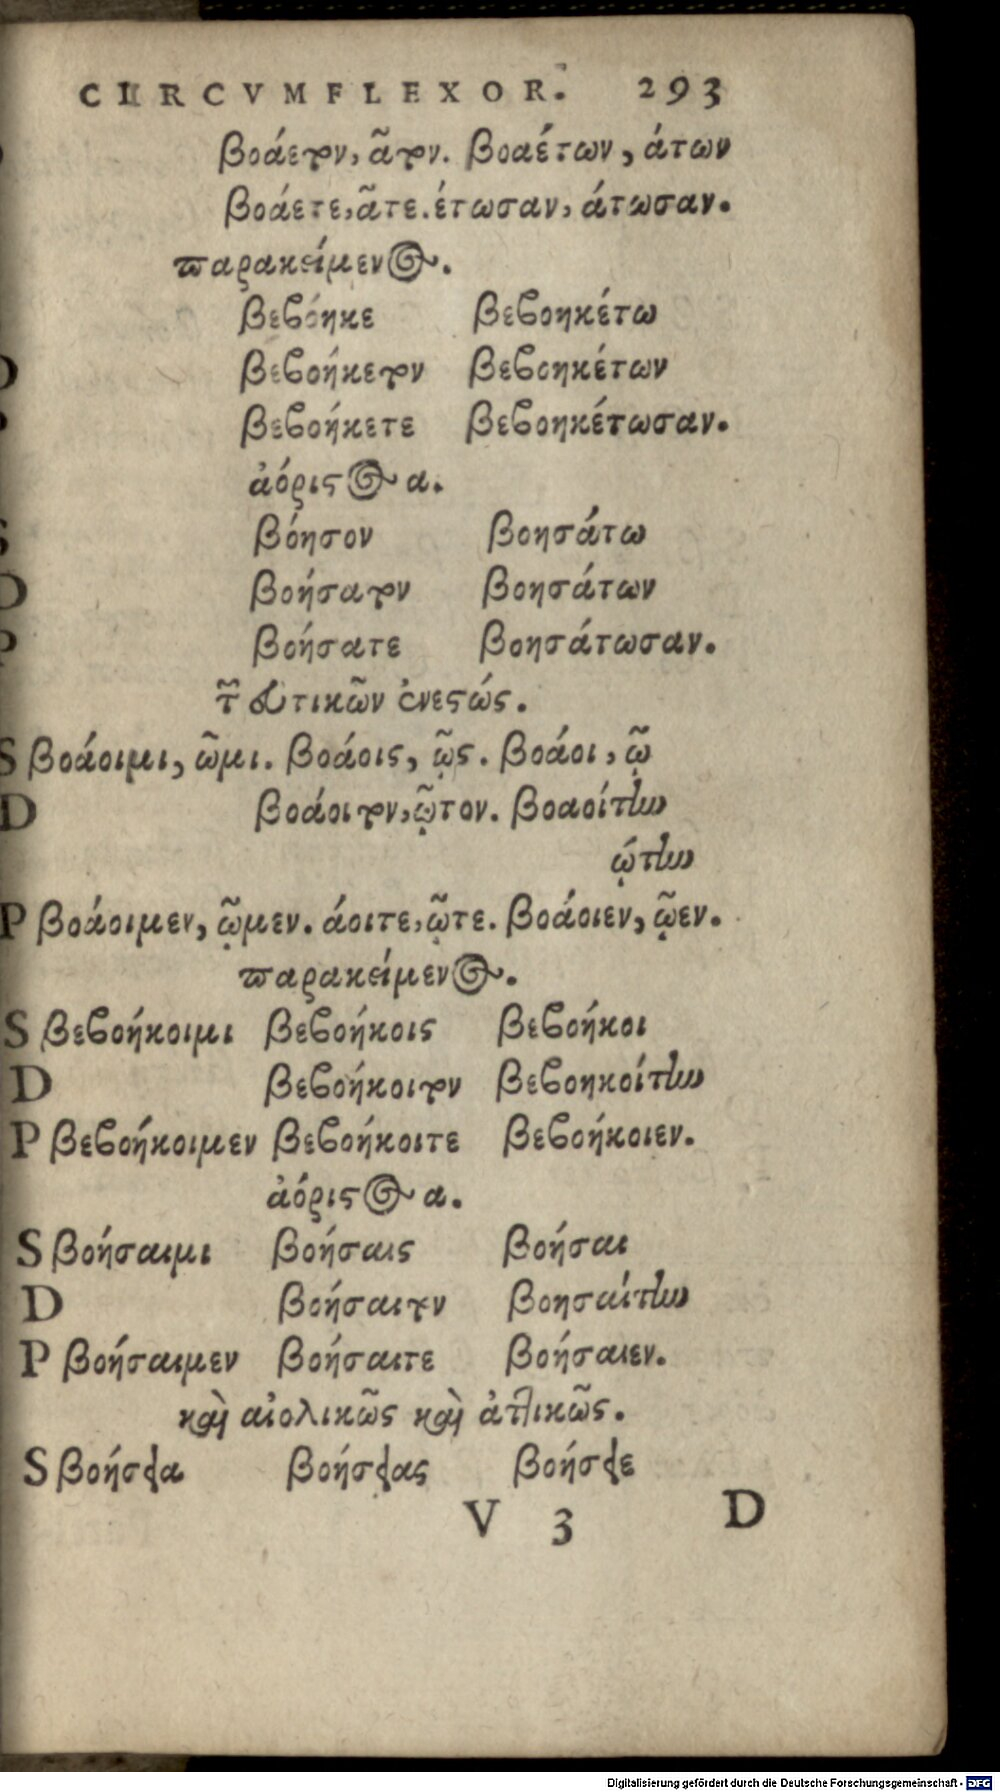 CIRCVMFLEXOR. 293
βοάετον, ᾶτον. βοαέτων, άτων
βοάετε, ᾶτε. έτωσαν, άτωσαν.
παρακείμενος.
βεβόηκε βεβοηκέτω
D βεβοήκετον βεβοηκέτων
βεβοήκετε βεβοηκέτωσαν.
ἀόριστος α.
S βόησον βοησάτω
D βοήσατον βοησάτων
P βοήσατε βοησάτωσαν.
τ῀ εὐτικῶν ἐνεστώς.
S βοάοιμι, ῶμι. βοάοις, ῷς. βοάοι, ῷ
D βοάοιτον, ῷτον. βοαοίτην
ῴτην
P βοάοιμεν, ῷμεν. άοιτε, ῷτε. βοάοιεν, ῷεν.
παρακείμενος.
S βεβοήκοιμι βεβοήκοις βεβοήκοι
D βεβοήκοιτον βεβοηκοίτην
P βεβοήκοιμεν βεβοήκοιτε βεβοήκοιεν.
ἀόριστος α.
S βοήσαιμι βοήσαις βοήσαι
D βοήσαιτον βοησαίτην
P βοήσαιμεν βοήσαιτε βοήσαιεν.
καὶ αἰολικῶς καὶ ἀττικῶς.
S βοήσεια βοήσειας βοήσειε
V 3 D
Digitalisierung gefördert durch die Deutsche Forschungsgemeinschaft - DFG